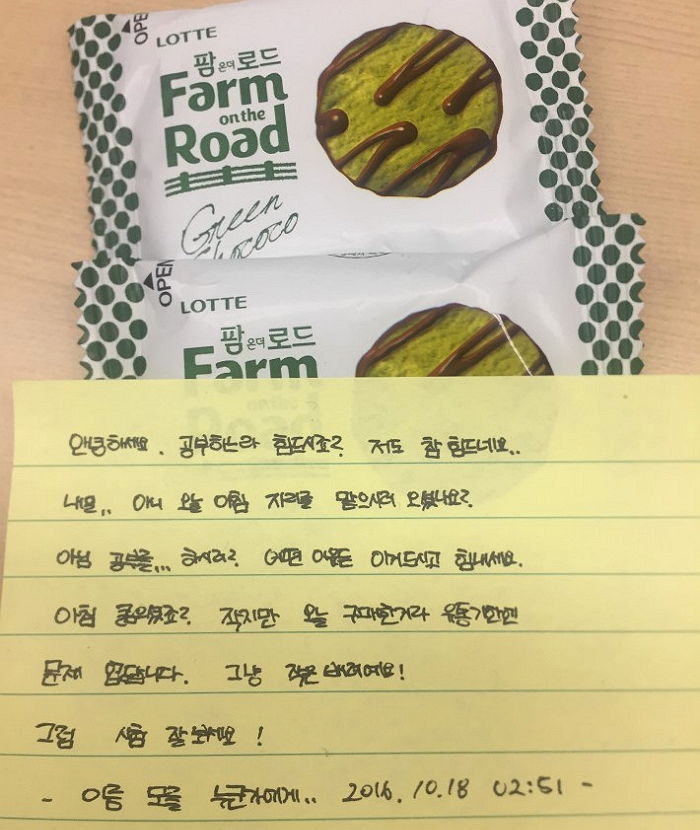 OPEN
LOTTE
팜온더로드
Farm
on the
Road
Green
Chococo
OPEN
LOTTE
팜온더로드
Farm
on the
Road
안녕하세요. 공부하느라 힘드시죠? 저도 참 힘드네요..
아니 오늘 아침 자리를 맡으시러 오셨나요?
아님 공부를,,, 하시러? 어떤 이유든 이거드시고 힘내세요.
아침 작지만 오늘 구매한거라 유통기한엔
문제 없답니다. 그냥 작은 배려예요!
그럼 시험 잘 보세요!
- 이름 모를 누군가에게.. 2016. 10. 18 02:51 -